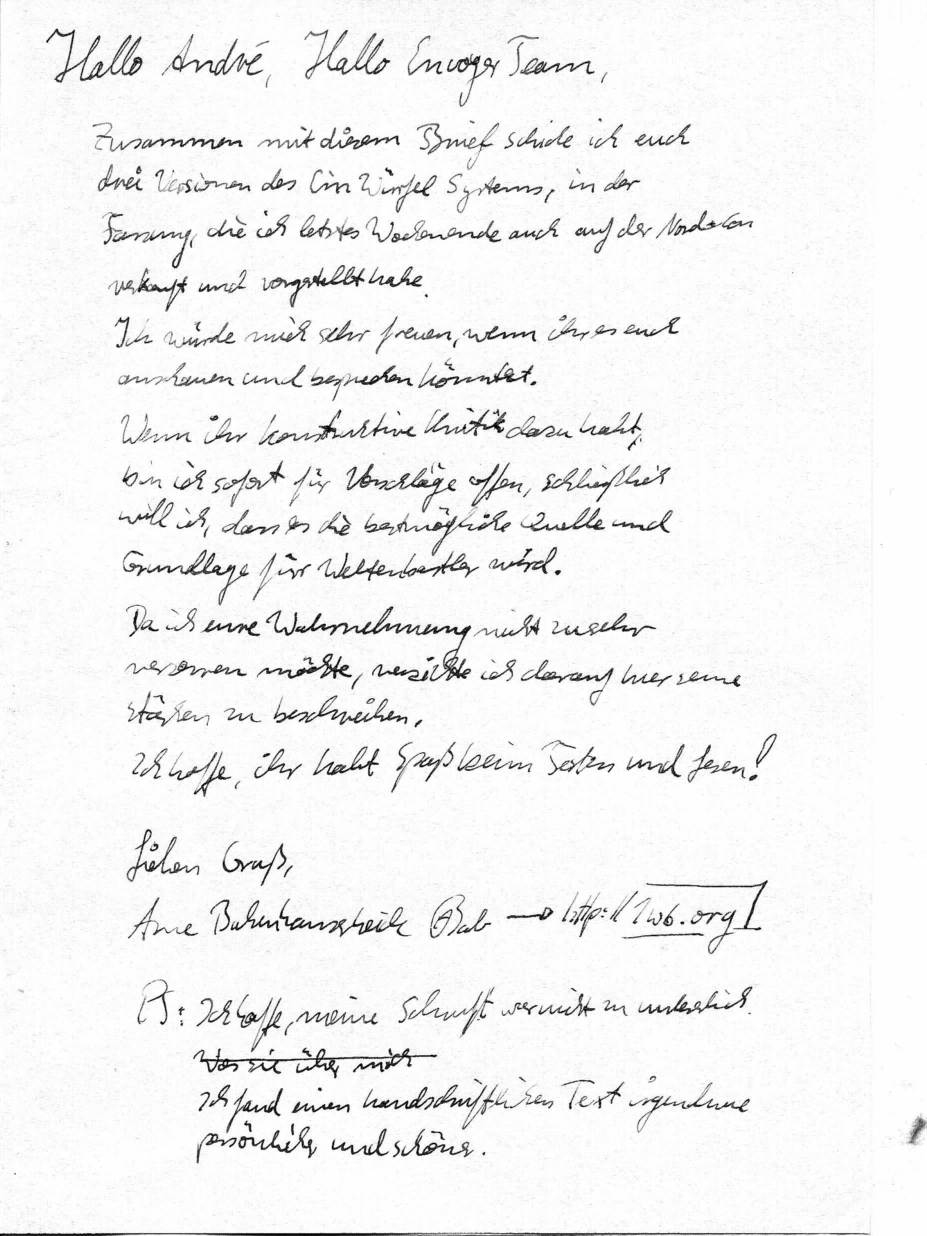 Hallo André, Hallo Envoyer Team,
Zusammen mit diesem Brief schicke ich euch
drei Versionen des Ein Würfel Systems, in der
Fassung, die ich letztes Wochenende auch auf der NordCon
verkauft und vorgestellt habe.
Ich würde mich sehr freuen, wenn ihr es euch
anschauen und besprechen könntet.
Wenn ihr konstruktive Kritik dazu habt,
bin ich sofort für Vorschläge offen, schließlich
will ich, dass es die bestmögliche Quelle und
Grundlage für Weltenbastler wird.
Da ich eure Wahrnehmung nicht zu sehr
verzerren möchte, verzichte ich darauf hier seine
Stärken zu beschreiben.
Ich hoffe, ihr habt Spaß beim Testen und Lesen!
Lieben Gruß,
Arne Babenhauserheide Bab → http://1w6.org
PS: Ich hoffe, meine Schrift war nicht zu unleserlich.
Was sie über mich
Ich fand einen handschriftlichen Text irgendwie
persönlicher und schöner.